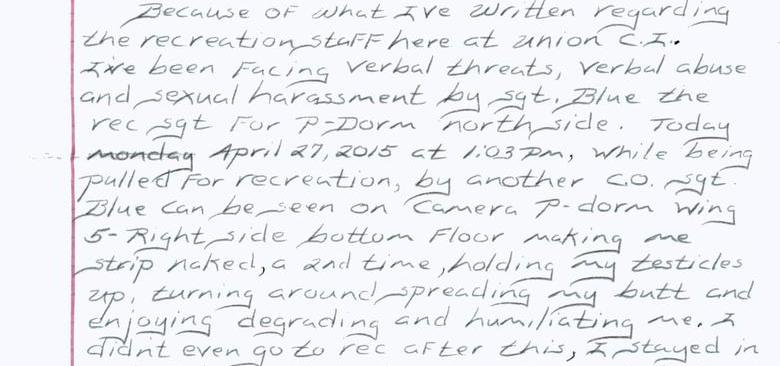 Because of what I've written regarding
the recreation staff here at union C.I.
I've been facing verbal threats, verbal abuse
and sexual harassment by sgt. Blue the
rec sgt for P-Dorm north side. Today
monday April 27, 2015 at 1:03 Pm, while being
pulled for recreation, by another C.O. sgt.
Blue can be seen on camera P-dorm wing
5-Right side bottom floor making me
strip naked, a 2nd time, holding my testicles
up, turning around spreading my butt and
enjoying degrading and humiliating me. I
didn't even go to rec after this, I stayed in